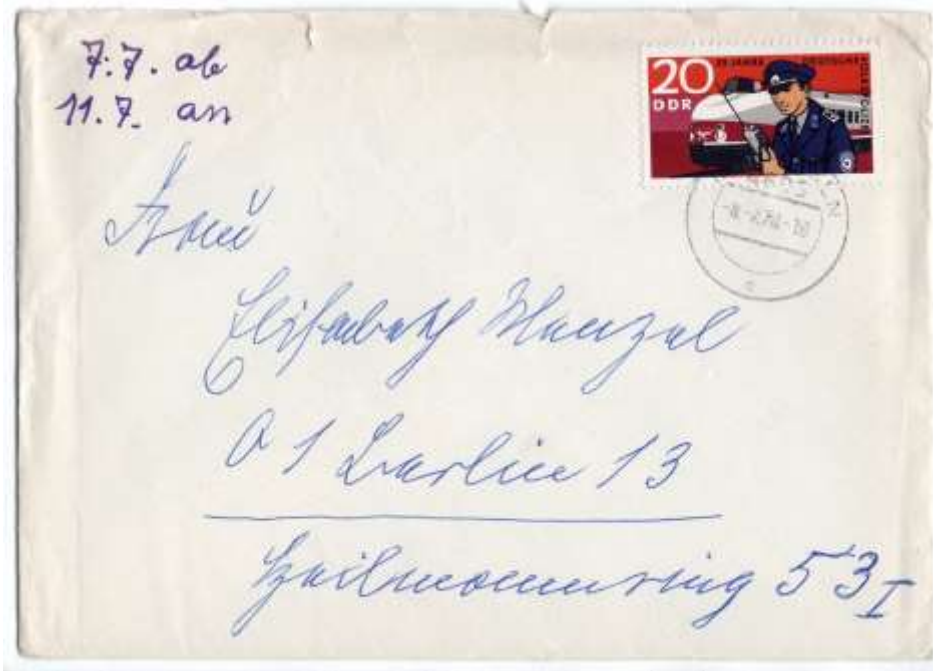 7.7. ab
11.7. an
20
DDR
25 JAHRE DEUTSCHE
VOLKSPOLIZEI
Frau
Elisabeth
1 Berlin 13
Heilmannring 53 I